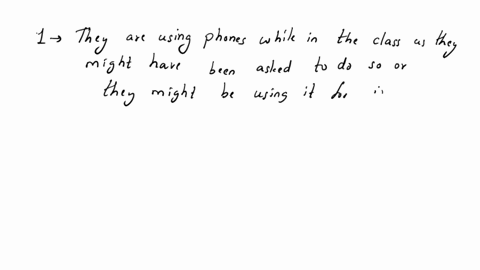 1 → They are using phones while in the class as they
might have been asked to do so or
they might be using it for